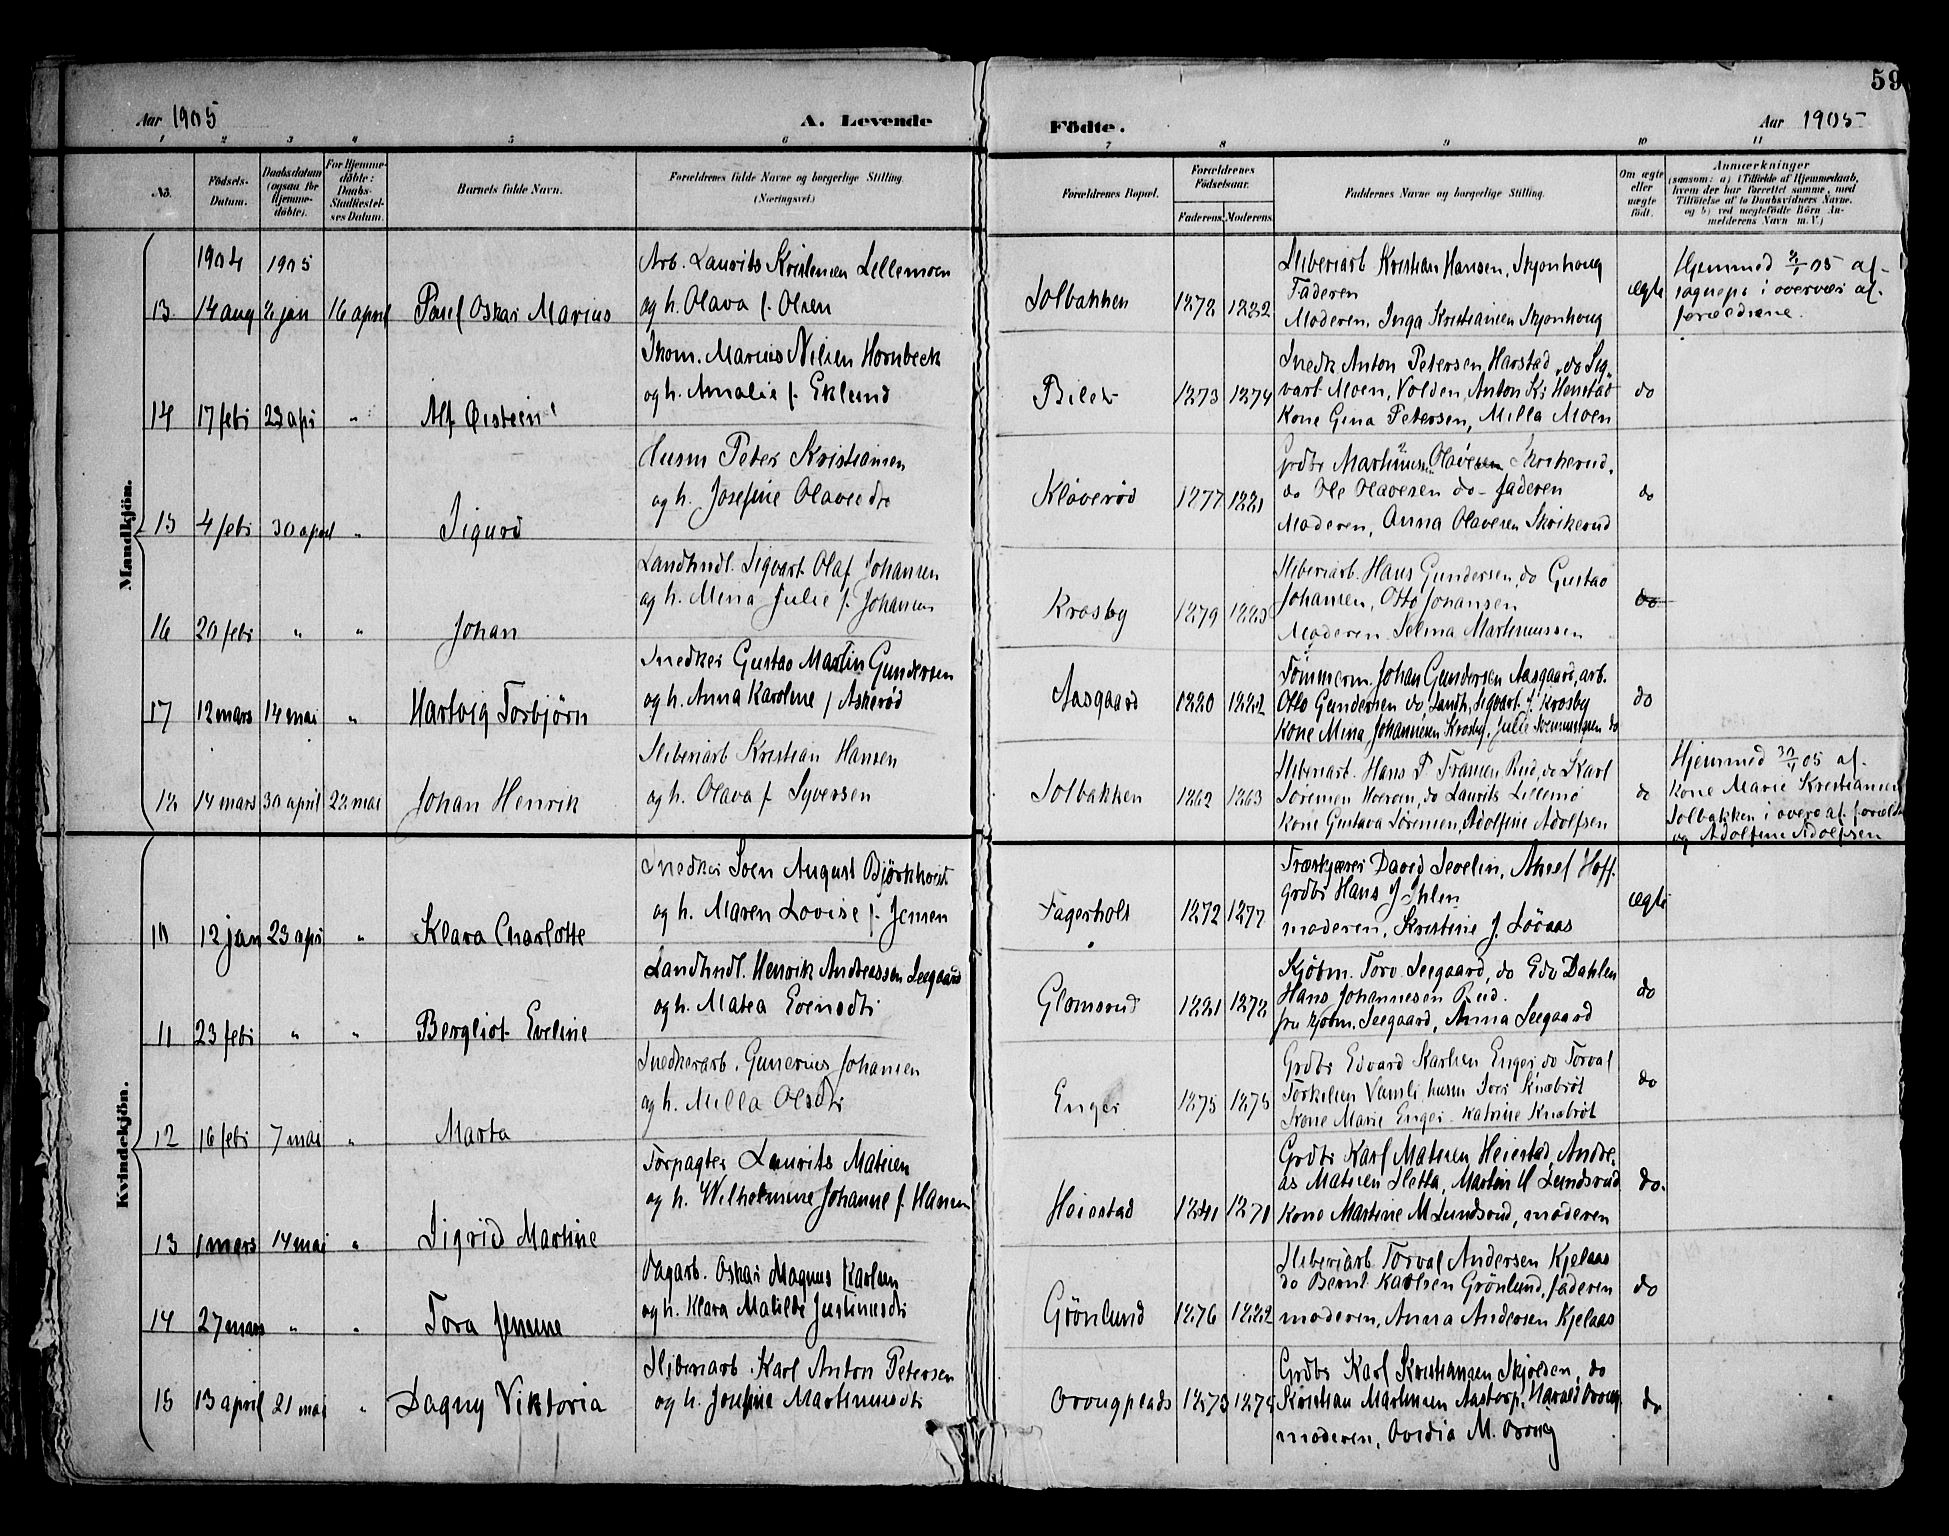 59
Aar 1905
A. Levende
Födte.
Aar 1905
1 2 3 4 5 6 7 8 9 10 11
No. Födsels-Datum. Daabsdatum (ogsaa for Hjemme-döbte). For Hjemme-döbte: Daabs-Stadfæstel-ses Datum. Barnets fulde Navn. Forældrenes fulde Navne og borgerlige Stilling. (Næringsvei.)
Forældrenes Bopæl. Forældrenes Födselsaar. Faderens. Moderens. Faddernes Navne og borgerlige Stilling. Om ægte eller uægte födt. Anmærkninger
(saasom: a) i Tilfælde af Hjemmedaab,
hvem der har forrettet samme, med
Tilföielse af to Daabsvidners Navne.
og b) ved uægtefödte Börn An-
melderens Navn m. V.)
Mandkjön.
1904 1905
13 14 aug jan 16 april Paul Oskar Marius
Arb. Laurits Kristensen Lillemoen
og h. Olava f. Olsen
Solbakken 1872 1882
Sliberiarb Kristian Hansen, Skjonhoug
Faderen
Moderen, Inga Kristiansen Skjonhoug
ægte
Hjemmed 05 af
sognepr i overvær af
forældrene.
14 17 febr 23 apr " Alf Øistein
Skom. Marius Nilsen Hornbeck
og h. Amalie f. Eklund
1873 1874
Snedk Anton Petersen, Harstad, do Sig-
vart Moen, Volden, Anton Kr Henstad
Kone Gina Petersen, Milla Moen
do
15 4 febr 30 april " Sigurd
Husm Peter Kristiansen
og h. Josefine Olavedtr
Kløverød 1877 1881
Grdbr Martinius Olavesen Skrikerud,
do Ole Olavesen do - faderen
Moderen, Anna Olavesen Skrikerud
do
16 20 febr " " Johan
Landhndl. Sigvart Olaf Johansen
og h. Mina Julie f. Johansen
Krosby 1879 1883
Sliberiarb. Hans Gundersen, do Gustav
Johansen, Otto Johansen
Moderen. Selma Martinussen
do
17 12 mars 14 mai " Hartvig Torbjørn
Snedker Gustav Martin Gundersen
og h. Anna Karoline f Askerød
Aasgaard 1880 1882
Tømmerm. Johan Gundersen Aasgaard, arb.
Otto Gundersen do, Landh, Sigvart J. Krosby
Kone Mina Johannesen Krosby, Julie
do
18 14 mars 30 april 28 mai Johan Henrik
Sliberiarb Kristian Hansen
og h. Olava f Syversen
Solbakken 1862 1863
Sliberiarb. Hans P Fransen Rud, do Karl
Sørensen, do Laurits Lillemo
Kone Gustava Sørensen, Adolfine Adolfsen
do
Hjemmed 05 af
Kone Marie Kristiansen
Solbakken i overv af forældr
og Adolfine Adolfsen
Kvindekjön.
10 12 jan 23 apr " Klara Charlotte
Snedker Sven August Björkkvist
og h. Maren Lovise f. Jensen
Fagerholt 1872 1877
Træskjærer David Sevelin, Aksel Hoff
grdbr Hans J Ihlen
moderen, Kristine J. Løvaas
ægte
11 23 febr " " Bergliot Eveline
Landhndl. Henrik Andreassen Seegaard
og h. Matea Evensdtr
Glomsrud 1881 1872
Kjøbm. Torv. Seegaard, do Edv Dahlen
Hans Johannesen Rud.
fru kjøbm. Seegaard, Anna Seegaard
do
12 16 febr 7 mai " Marta
Snedkerarb. Gunerius Johansen
og h. Milla Olsdtr
Enger 1875 1875
Grdbr Edvard Karlsen Enger, do Torval
Torkilsen Vamli husm Iver Knabrøt
Kone Marie Enger Katrine Knabrøt
do
13 1 mars 14 mai " Sigrid Martine
Forpagter Laurits Matisen
og h. Wilhelmine Johanne f. Hansen
Heiestad 1841 1871
Grdbr Karl Matisen Heiestad, Andre-
as Matisen Sletta, Martin M Lundsrud
Kone Martine M Lundsrud, moderen
do.
14 27 mars " " Tora Jensine
Dagarb. Oskar Magnus Karlsen
og h. Klara Matilde Justinusdtr
Grönlund 1876 1882
Sliberiarb Torval Andersen Kjelaas
do Bernt Karlsen Grönlund, faderen
moderen, Anna Andersen Kjelaas
do
15 13 april 21 mai " Dagny Viktoria
Sliberiarb. Karl Anton Petersen
og h. Josefine Martinusdtr
1873 1875
Grdbr Karl Kristiansen Skjolden, do
Kristian Martinsen Aastorp, Harald
moderen, Ovidia M.
do